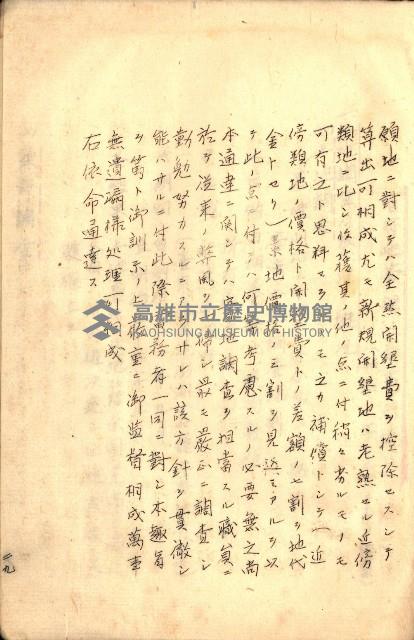 願地ニ對シテハ全然開墾費ヲ控除セスシテ
算出可相成尤モ新規開墾地ハ老熟セル近傍
類地ニ比シ收穫其ノ他ノ点ニ付稍々劣ルモノモ
可有之ト思料セラルルモ之カ補償トシテ(近
傍類地ノ價格ト開墾費トノ差額ノ七割ヲ地代
金トセリ)素地價格ニ三割ヲ見込ミアルヲ以
テ此ノ点ニ付テハ何等考慮スルノ必要無之尚
本通達ニ関シテハ實地調査ヲ担當スル職員ニ
於テ從来ノ弊風ヲ一掃シ最モ嚴正ニ調査シ
勤勉努力スルニアラサレハ該方針ヲ貫徹シ
能ハサルニ付此ノ際事務者一同ニ對シ本趣旨
ヲ篤ト御訓示ノ上嚴重ニ御監督相成萬事
無遺漏様処理可相成
右依命通達ス
二九
高雄市立歷史博物館
KAOHSIUNG MUSEUM OF HISTORY